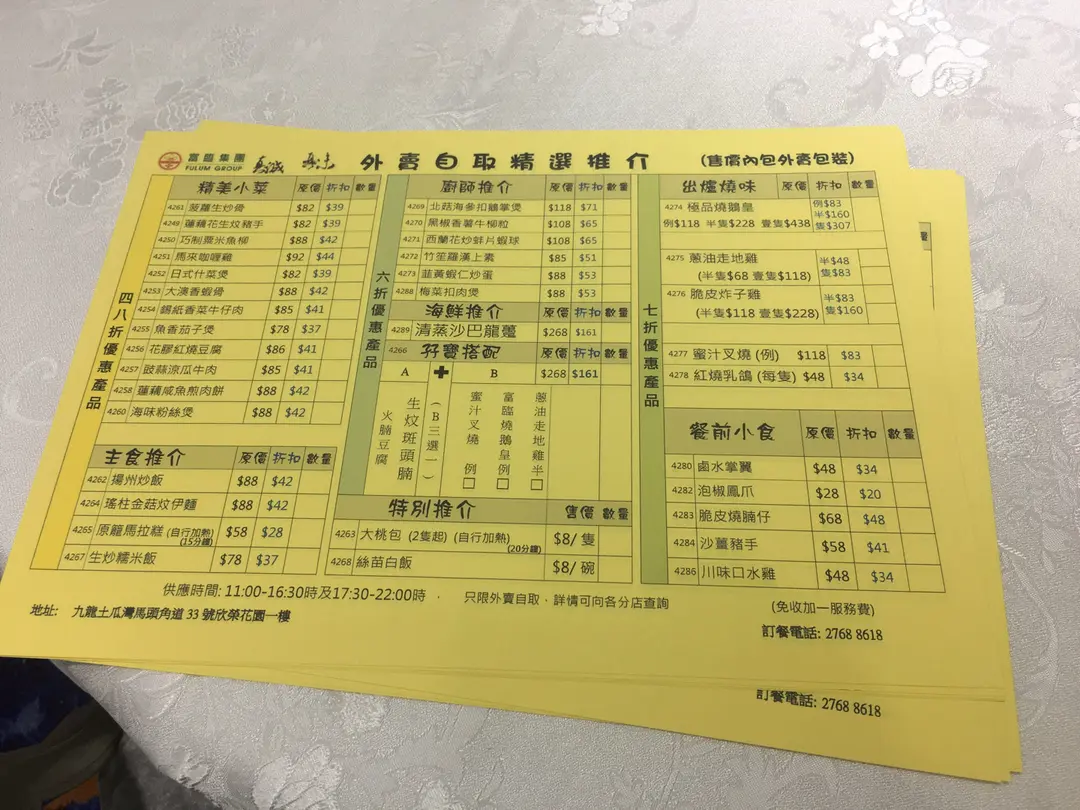 富臨集團
FULUM GROUP
外賣自取精選推介
(售價內包外賣包裝)
四八折優惠產品
精美小菜 原價 折扣 數量
4261 菠蘿生炒骨 $82 $39
4248 蓮藕花生炆豬手 $82 $39
4250 巧制粟米魚柳 $88 $42
4251 馬來咖喱雞 $92 $44
4252 日式什菜煲 $82 $39
4253 大澳香蝦骨 $88 $42
4254 錫紙香菜牛仔肉 $85 $41
4255 魚香茄子煲 $78 $37
4256 花膠紅燒豆腐 $86 $41
4257 豉蒜涼瓜牛肉 $85 $41
4258 蓮藕咸魚煎肉餅 $88 $42
4260 海味粉絲煲 $88 $42
主食推介 原價 折扣 數量
4262 揚州炒飯 $88 $42
4264 瑤柱金菇炆伊麵 $88 $42
4265 原籠馬拉糕 (自行加熱) $58 $28
(15分鐘)
4267 生炒糯米飯 $78 $37
六折優惠產品
廚師推介 原價 折扣 數量
4269 北菇海參扣鵝掌煲 $118 $71
4270 黑椒香薯牛柳粒 $108 $65
4271 西蘭花炒蚌片蝦球 $108 $65
4272 竹笙羅漢上素 $85 $51
4273 韮黃蝦仁炒蛋 $88 $53
4288 梅菜扣肉煲 $88 $53
海鮮推介 原價 折扣 數量
4289 清蒸沙巴龍躉 $268 $161
4266 孖寶搭配 原價 折扣 數量
A ✚ B $268 $161
火腩豆腐
生炆斑頭腩
(B三選一)
蜜汁叉燒 例□
富臨燒鵝皇例□
蔥油走地雞半□
特別推介 售價 數量
4263 大桃包 (2隻起) (自行加熱) $8/ 隻
(20分鐘)
4268 絲苗白飯 $8/ 碗
七折優惠產品
出爐燒味 原價 折扣 數量
4274 極品燒鵝皇 例$83
半$160
例$118 半隻$228 壹隻$438 隻$307
4275 蔥油走地雞 半$48
(半隻$68 壹隻$118) 隻$83
4276 脆皮炸子雞 半$83
(半隻$118 壹隻$228) 隻$160
4277 蜜汁叉燒 (例) $118 $83
4278 紅燒乳鴿 (每隻) $48 $34
餐前小食 原價 折扣 數量
4280 鹵水掌翼 $48 $34
4282 泡椒鳳爪 $28 $20
4283 脆皮燒腩仔 $68 $48
4284 沙薑豬手 $58 $41
4286 川味口水雞 $48 $34
供應時間: 11:00-16:30時及17:30-22:00時 , 只限外賣自取,詳情可向各分店查詢
(免收加一服務費)
地址: 九龍土瓜灣馬頭角道 33 號欣榮花園一樓
訂餐電話: 2768 8618
訂餐電話: 2768 8618